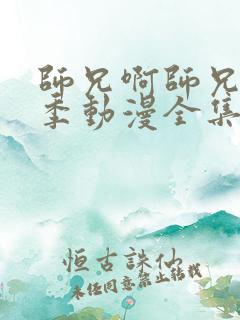 師兄啊師兄
季動漫全集
恒古誅仙
未经同意禁止转载